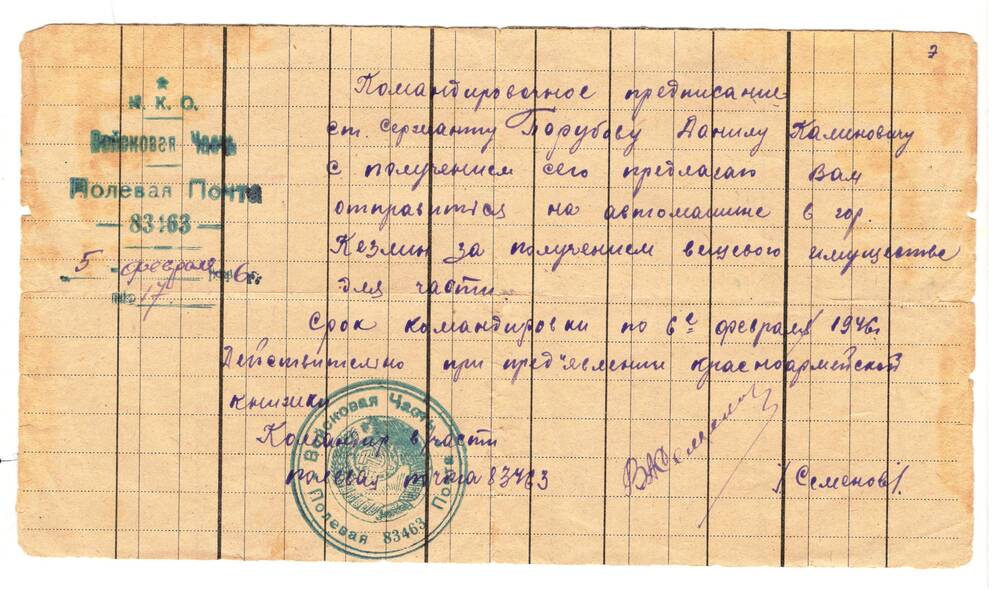 7
★
Н. К. О.
Войсковая Часть
Полевая Почта
83463
5 февраля 1946г.
№ 17.
Командировочное предписание
ст. сержанту Порубову Данилу Калиновичу
с получением сего предлагаю Вам
отправится на автомашине в гор.
Кезлин за получением вещевого имущества
для части.
Срок командировки по 6е февраля 1946г.
Действительно при пред'явлении красноармейской
книжки
Командир в/части
полевая почта 83463
/Семенов/.
Войсковая Часть
Полевая 83463